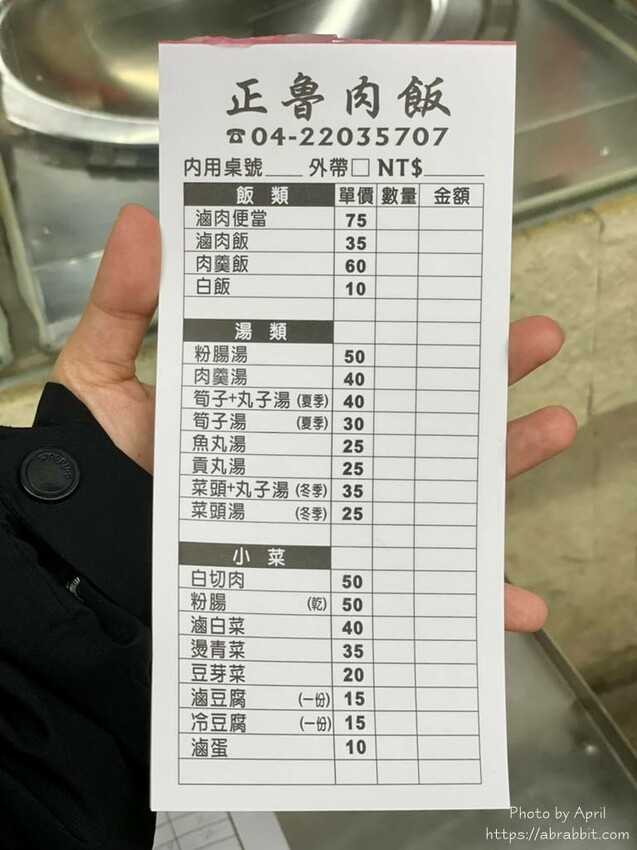 正魯肉飯
☎04-22035707
内用桌號____ 外帶□ NT$______
飯類 單價 數量 金額
滷肉便當 75
滷肉飯 35
肉羹飯 60
白飯 10
湯類
粉腸湯 50
肉羹湯 40
筍子+丸子湯 (夏季) 40
筍子湯 (夏季) 30
魚丸湯 25
貢丸湯 25
菜頭+丸子湯 (冬季) 35
菜頭湯 (冬季) 25
小菜
白切肉 50
粉腸 (乾) 50
滷白菜 40
燙青菜 35
豆芽菜 20
滷豆腐 (一份) 15
冷豆腐 (一份) 15
滷蛋 10
Photo by April
https://abrabbit.com/